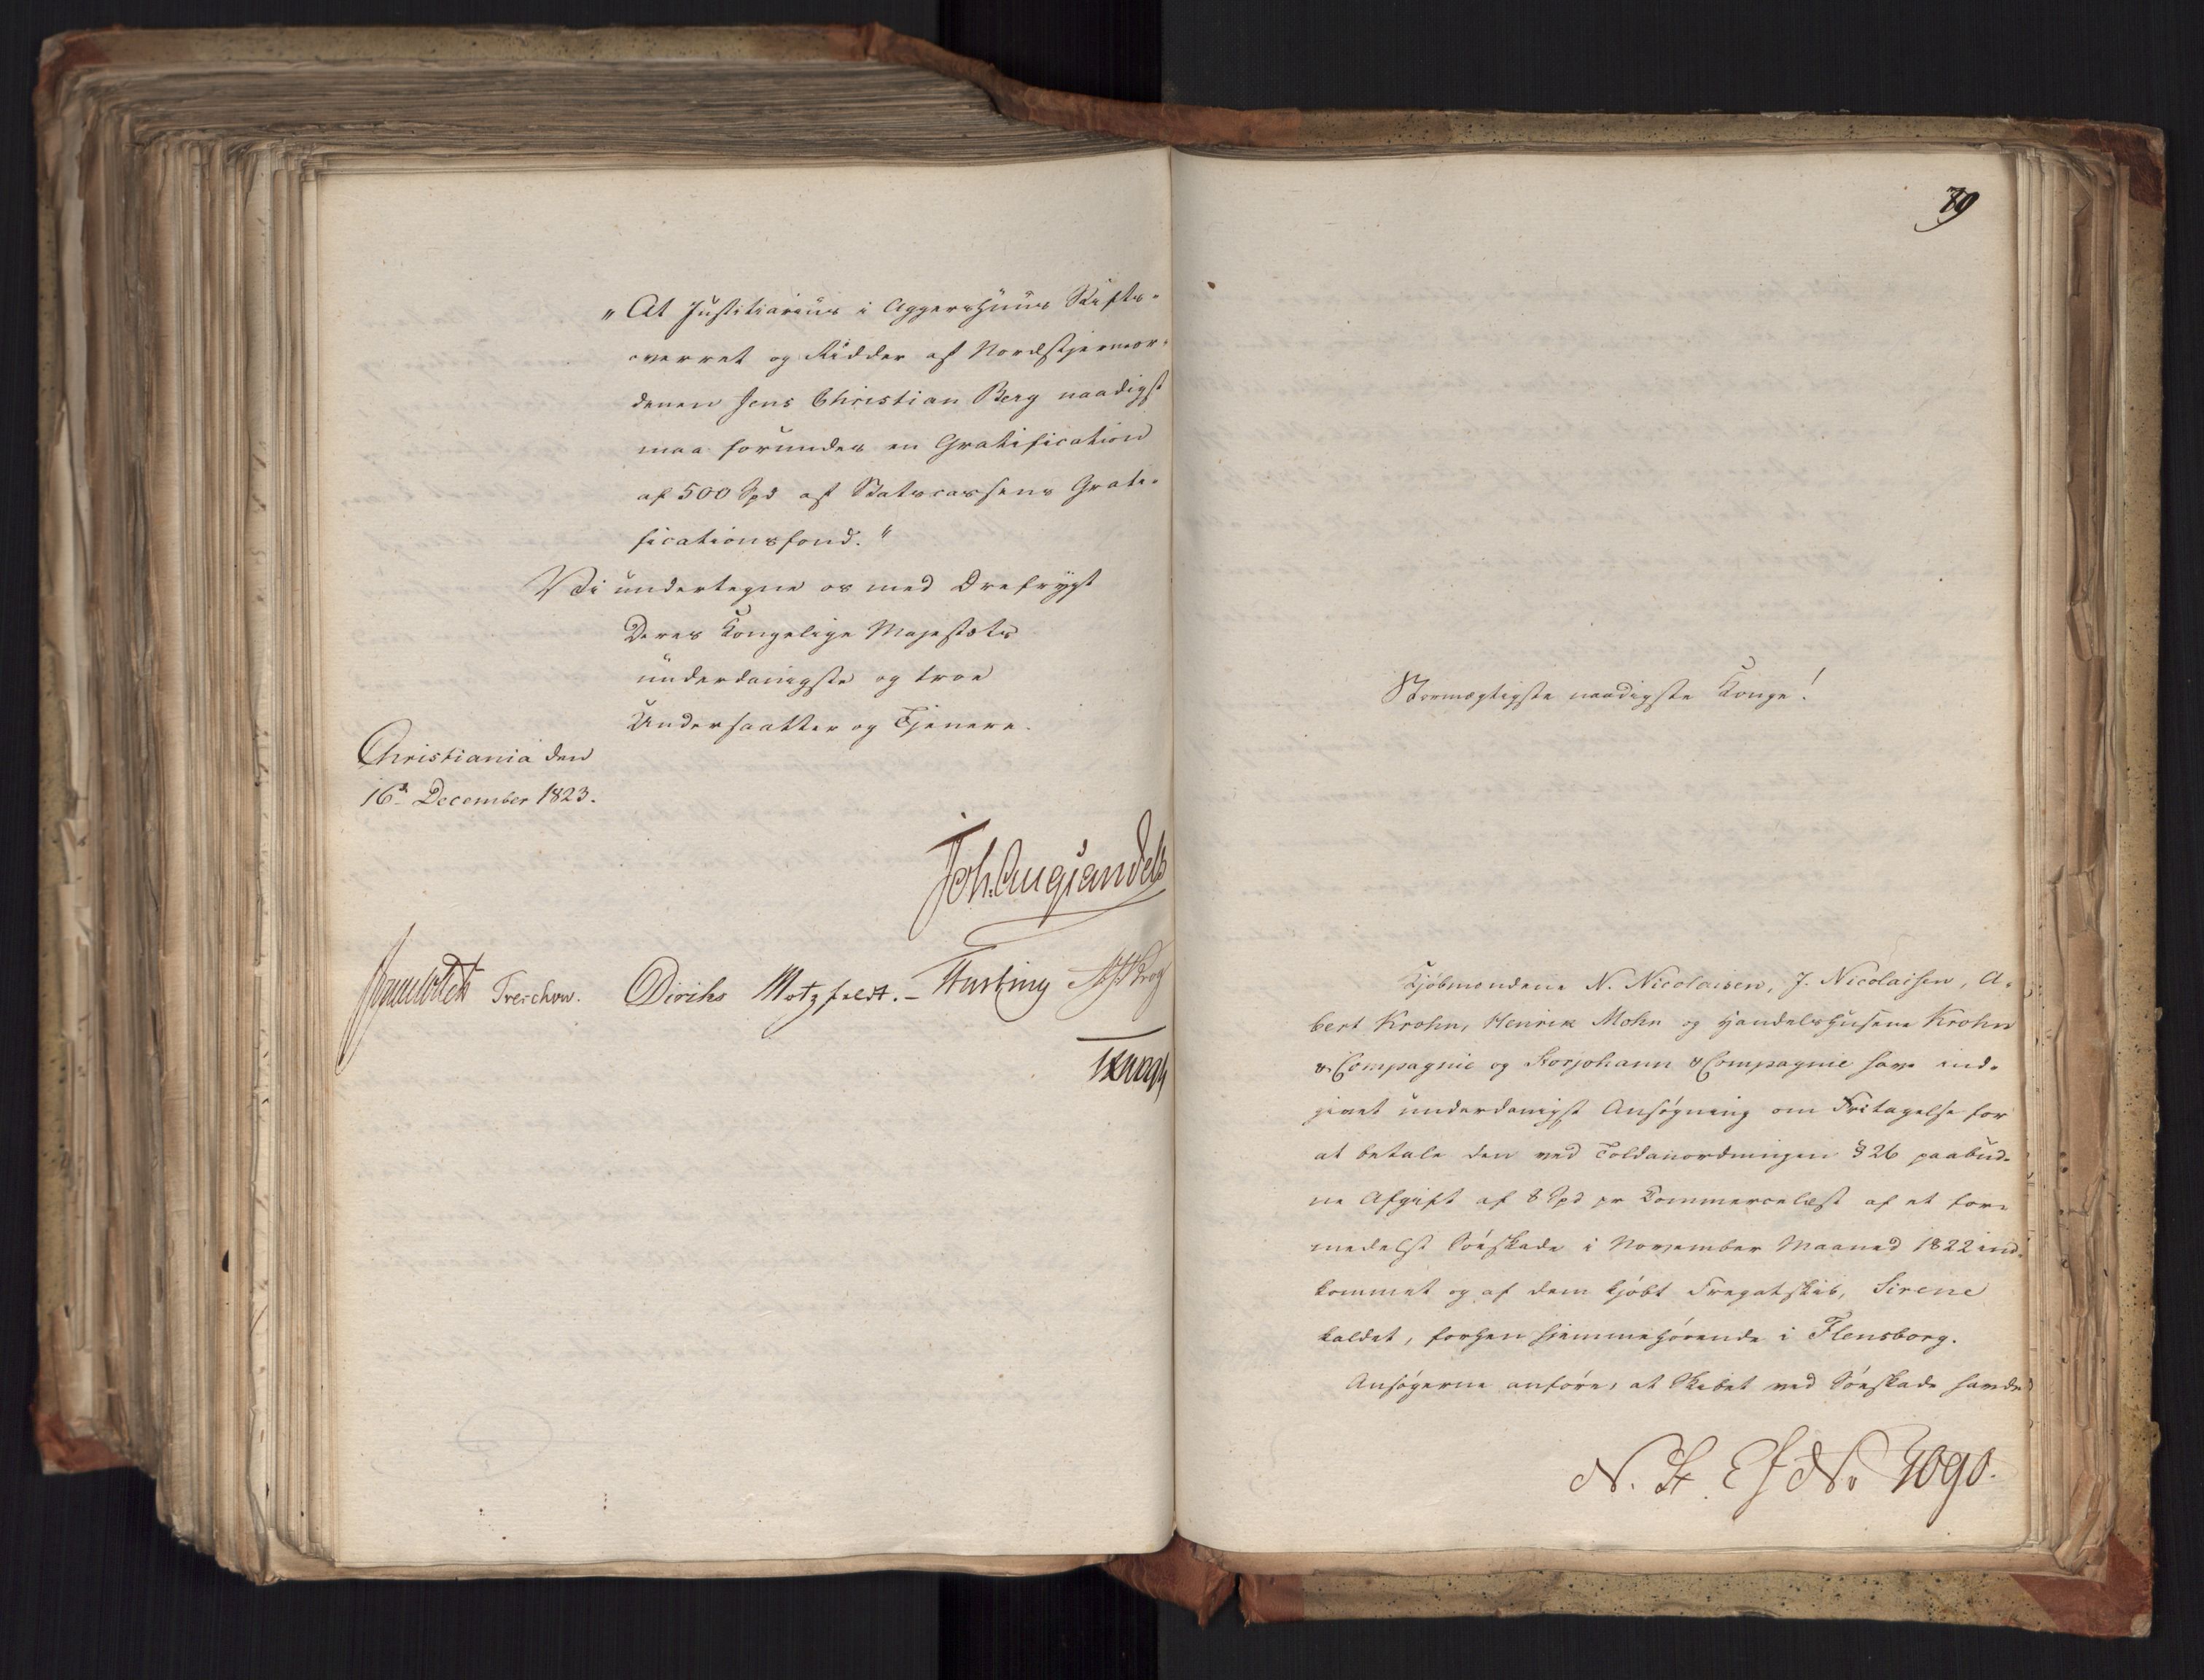 „At Justitiarius i Aggershuus Stifts-
overret og Ridder af Nordstjerneor-
denen Jens Christian Berg naadigst
maa forundes en Gratification
af 500 Spd af Statscassens Grati-
ficationsfond."
Vi undertegne os med Ærefrygt
Deres Kongelige Majestæts
underdanigste og troe
Undersaatter og Tjenere.
Christiania den
16d December 1823.
Joh. Aug. Sandels
Sommerfeldt Treschow. Diriks Motzfeldt. Fasting Krog
79
Stormægtigste naadigste Konge!
Kjøbmændene N. Nicolaisen, J. Nicolaisen, A-
bert Krohn, Henrik Mohn og Handelshusene Krohn
& Compagnie og Storjohann & Compagnie have ind-
givet underdanigst Ansøgning om Fritagelse for
at betale den ved Toldanordningen § 26 paabud-
ne Afgift af 8 Spd pr Commercelæst af et for-
medelst Søeskade i November Maaned 1822 ind-
kommet og af dem kjøbt Fregatskib, Sirene
kaldet, forhen hjemmehørende i Flensborg.
Ansøgerne anføre, at Skibet ved Søeskade havde
N. St. Ef No